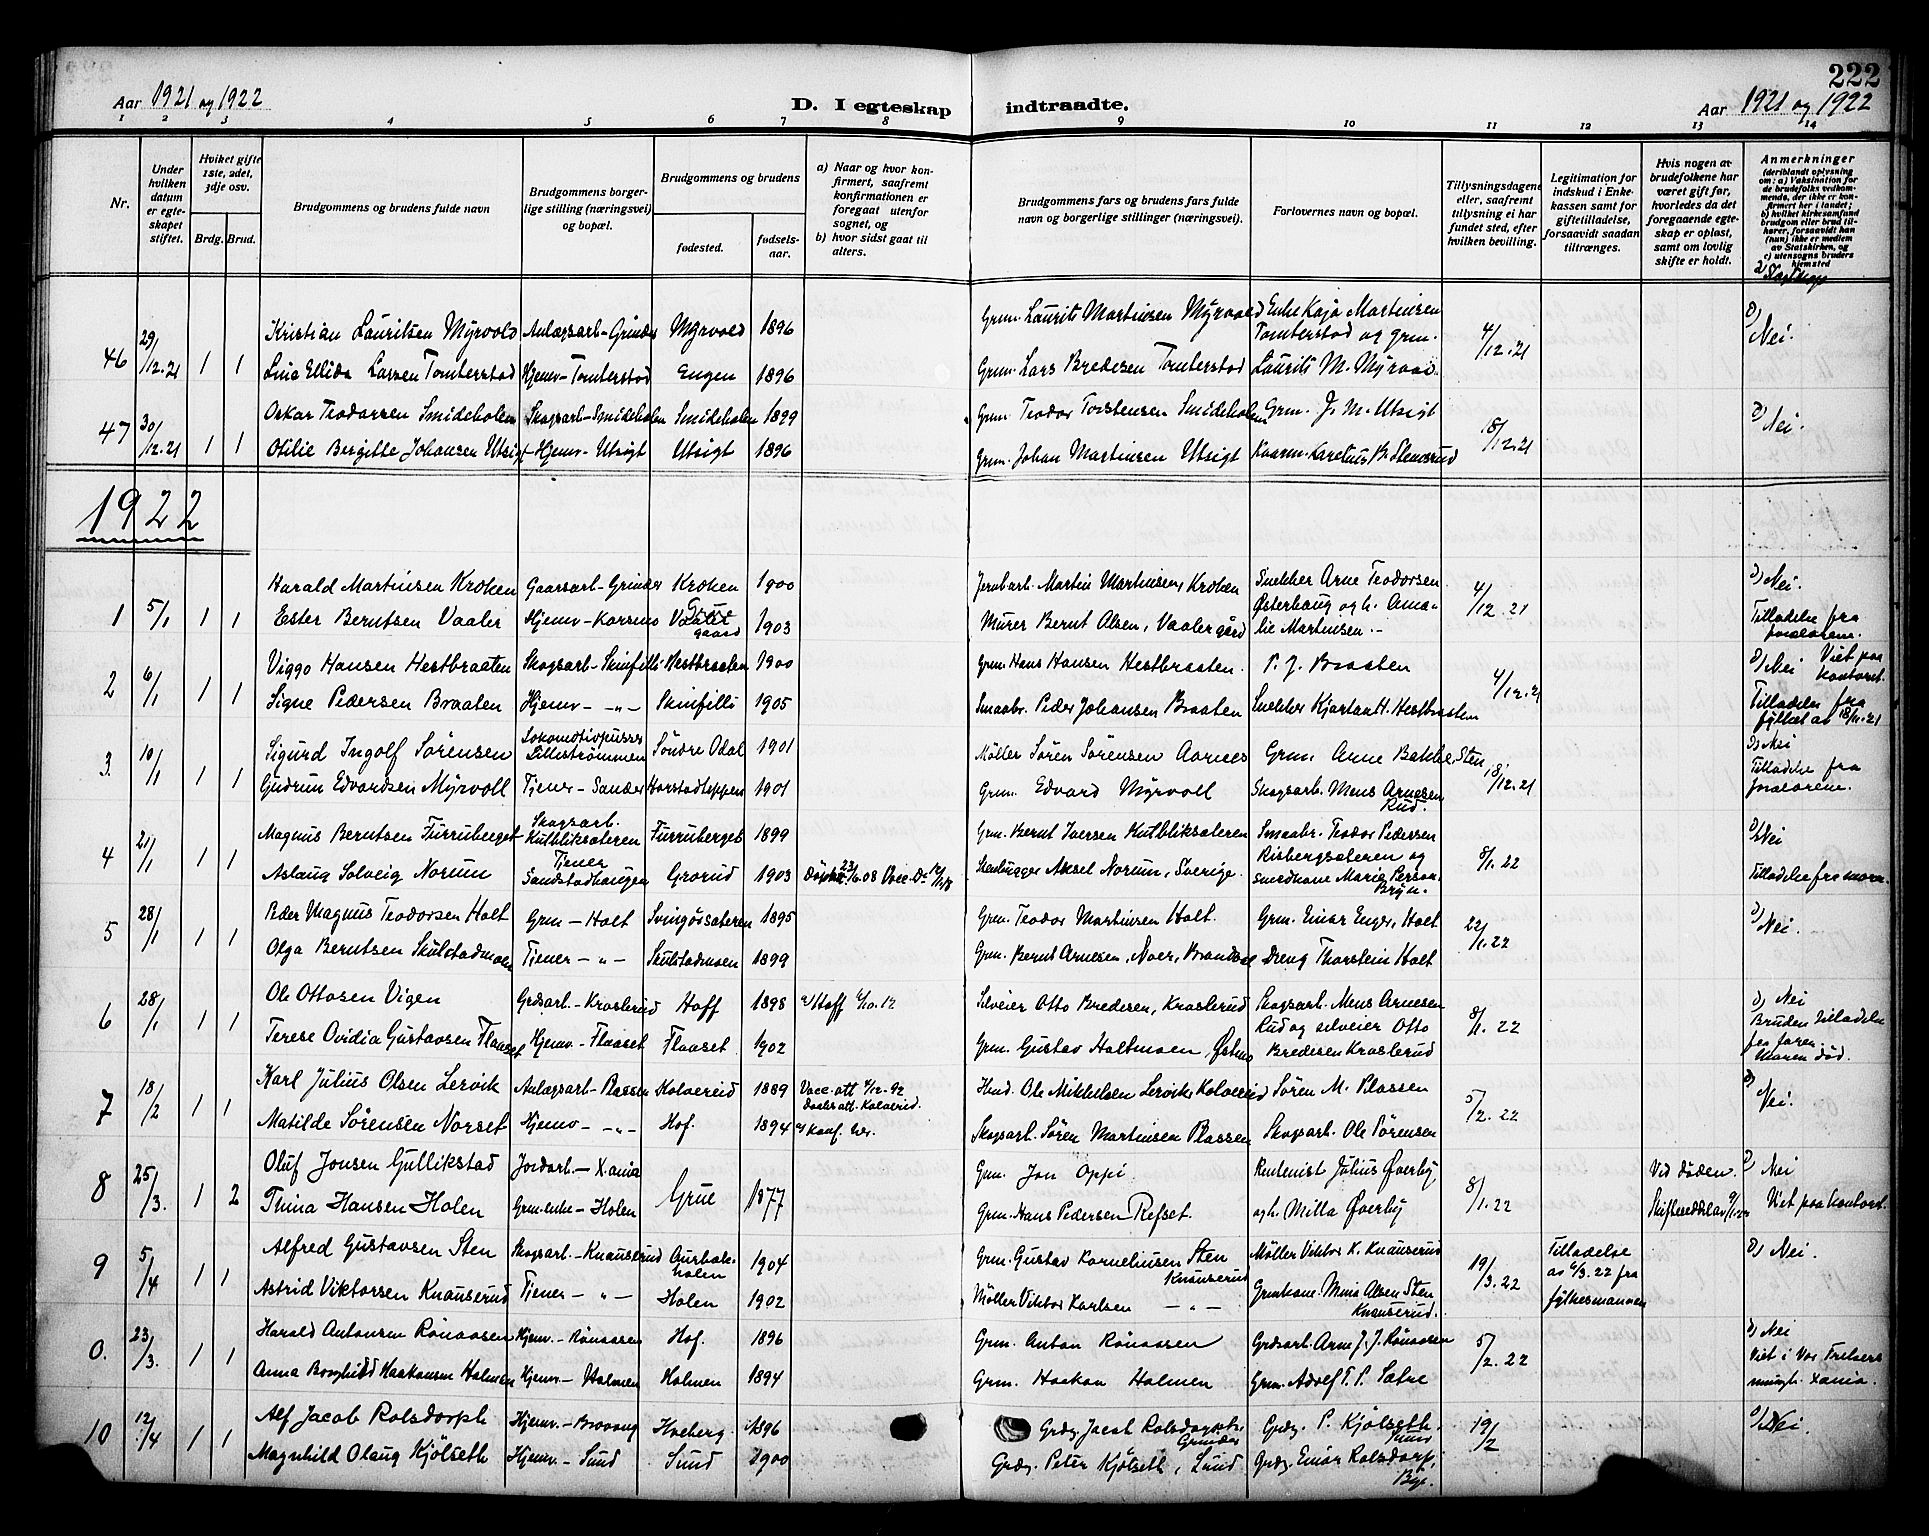 222
Aar 1921 og 1922
D. I egteskap indtraadte.
Aar 1921 og 1922
1 2 3 4 5 6 7 8 9 10 11 12 13 14
Nr.
Under hvilken datum er egteskapet stiftet.
Hvilket gifte 1ste, 2det, 3dje osv.
Brdg. Brud.
Brudgommens og brudens fulde navn
Brudgommens borgerlige stilling (næringsvei) og bopæl.
Brudgommens og brudens
fødested.
fødselsaar.
a) Naar og hvor konfirmert, saafremt konfirmationen er foregaat utenfor sognet, og
b) hvor sidst gaat til alters.
Brudgommens fars og brudens fars fulde navn og borgerlige stillinger (næringsvei).
Forlovernes navn og bopæl.
Tillysningsdagene eller, saafremt tillysning ei har fundet sted, efter hvilken bevilling.
Legitimation for indskud i Enkekassen samt for giftetilladelse, forsaavidt saadan tiltrænges.
Hvis nogen av brudefolkene har været gift før, hvorledes da det foregaaende egteskap er opløst, samt om lovlig skifte er holdt.
Anmerkninger (deriblandt oplysning om: a) Vaksination for de brudefolks vedkommende, der ikke er konfirmert her i landet; b) hvilket kirkesamfund brudgom eller brud tilhører, forsaavidt han (hun) ikke er medlem av Statskirken, og c) utensogns bruders hjemsted
46 29/12.21 1 1 Kristian Lauritsen Myrvold Anlægsarb-Grinder Myrvold 1896 Grm. Laurits Martinsen Myrvold Enke Kaja Martinsen Tomterstad og grm. 4/12.21 Nei.
Lina Ellida Larsen Tomterstad Hjemv-Tomterstad Engen 1896 Grm. Lars Bredesen Tomterstad Laurits M. Myrvold
47 30/12.21 1 1 Oskar Teodorsen Smideholen Skogsarb-Smideholen Smideholen 1899 Grm. Teodor Torstensen Smideholen Grm. J. M. Utsigt 18/12.21 Nei.
Otilie Bergitte Johansen Utsigt Hjemv-Utsigt Utsigt 1896 Grm. Johan Martinsen Utsigt
1922
1 5/1 1 1 Harald Martinsen Kroken Gaarsarb-Grinder Kroken 1900 Jernbarb. Martin Martinsen, Kroken Snekker Arne Teodorsen Østerhaug og h. Amalie Martinsen.- 4/12.21 Nei.
Ester Berntsen Vaaler Hjemv- 1903 Murer Bernt Olsen, Vaalergård Tilladelse fra forældrene.
2 6/1 1 1 Viggo Hansen Hestbraaten Skogsarb-Skinfilli Hestbraaten 1900 Grm. Hans Hansen Hestbraaten. P. J. Braaten 4/12.21 Nei Viet paa kontoret.
Signe Pedersen Braaten Hjemv- -"- Skinfilli 1905 Smaabr. Peder Johansen Braaten Snekker Kjartan H. Hestbraaten Tilladelse fra fylket av 18/11.21
3. 10/1 1 1 Sigurd Ingolf Sørensen Lokomotivpusser Lillestrømmen Søndre Odal 1901 Møller Søren Sørensen Aarnes Grm. Arne Bakke, Sten 18/12.21 Nei
Gudrun Edvardsen Myrvoll Tjener-Sander Harstadteppen 1901 Grm. Edvard Myrvoll Skogsarb. Mons Arnesen Rud. Tilladelse fra forældrene.
4 21/1 1 1 Magnus Berntsen Furruberget Skogsarb. Kutbliksæteren Furruberget 1899 Grm. Bernt Iversen Kutbliksæteren Smaabr. Teodor Pedersen Risbergsæteren og 8/1.22 Nei
Aslaug Solveig Norum Tjener Sandstadhaugen Grorud 1903 Aksel Norum, Sverige. smedkone Marie Person Bryn. Tilladelse fra moren.
5 28/1 1 1 Peder Magnus Teodorsen Holt Grm-Holt Svingørsæteren 1895 Grm. Teodor Martinsen Holt. Grm. Einar Enger, Holt 22/1.22 Nei.
Olga Berntsen Skulstadmoen Tjener- "- Skulstadmoen 1899 Grm. Bernt Arnesen, Noer, Brandval Dreng Thorstein Holt
6 28/1 1 1 Ole Ottosen Vigen Grdsarb-Kraslerud Hoff 1898 a/ Hoff 6/10.12 Selveier Otto Bredesen, Kraslerud Skogsarb. Mons Arnesen Rud og selveier Otto Bredesen Kraslerud 8/1.22 Nei
Terese Ovidia Gustavsen Flaaset Hjemv-Flaaset Flaaset 1902 Grm. Gustav Holtmoen, Bruden tilladelse fra faren. Moren død.
7 18/2 1 1 Karl Julius Olsen Lervik Anlægsarb-Plassen Kolvereid 1889 Vacc-att Daabsatt. Kolvereid. Ole Mikkelsen Lervik, Kolvereid Søren M. Plassen 5/2.22 Nei.
Matilde Sørensen Norset Hjemv- -"- Hof. 1894 a/ Konf. her. Skogsarb. Søren Martinsen Plassen Skogsarb. Ole Sørensen
8 25/3. 1 2 Oluf Jonsen Gullikstad Jordarb-Xania Grue 1877 Grm. Jon Oppi Rudenist Julius Øverby og h. Milla Øverby 8/1.22 Ved døden. Nei
Thina Hansen Holen Grm.enke-Holen Grm. Hans Pedersen Refset. Viet paa kontoret.
9 5/4 1 1 Alfred Gustavsen Sten Skogsarb-Knauserud 1904 Grm. Gustav Kornelinsen Sten Knauserud Møller Viktor K. Knauserud 19/3.22 Tilladelse av 6/3.22 fra fylkesmannen Nei.
Astrid Viktorsen Knauserud Tjener- "- Holen 1902 Møller Viktor Karlsen -"- Grmkone. Mina Olsen Sten Knauserud.
0. 23/3. 1 1 Harald Antonsen Rønaasen Hjemv-Rønaasen Hof. 1896 Grm. Anton Rønaasen Grdsarb. Arne J. J. Rønaasen 5/2.22 Nei
Anna Borghild Haakonsen Holmen Hjemv-Holmen Holmen 1894 Grm. Haakon Holmen Grm. Adolf T. P. Sætre Viet i Vor Frelsers menigh. Xania.
10 12/4 1 1 Alf Jacob Rolsdorph Hjemv-Braavang Hveberg 1896 Grdg. Jacob Rolsdorph Grinder Grdg. P. Kjølseth. Sund 19/2 Nei.
Magnhild Olaug Kjølseth Hjemv-Sund Sund 1900 Grdg. Peter Kjølseth, Sund Grdg. Einar Rolsdorf,